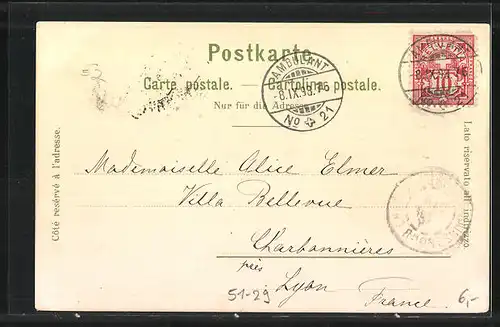 Postkarte.
Carte postale. — Cartolina postale.
Nur für die Adresse
AMBULANT
-8.IX.98.16
No 21
10
Côté reservé à l'adresse.
Lato riservato all' indirizzo.
Mademoiselle Alice Elmer
Villa Bellevue
Charbonnières
près
Lyon
France.
51-29
6,-